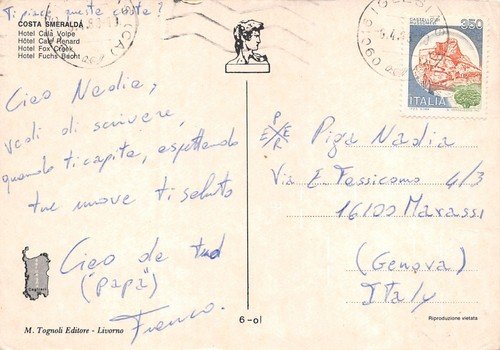 Ti piace questa carta?
COSTA SMERALDA
Hotel Cala Volpe
Hôtel Cale Renard
Hotel Fox Creek
Hotel Fuchs Bucht
Ciao Nadia,
vedi di scrivere,
quando ti capita, aspettando
tue nuove ti saluto
Ciao de
("papà")
Franco.
M. Tognoli Editore - Livorno
6-ol
350
ITALIA
PER
Piga Nadia
Via E. Tassicomo 4/3
16100 Marassi
(Genova)
Italy
Riproduzione vietata